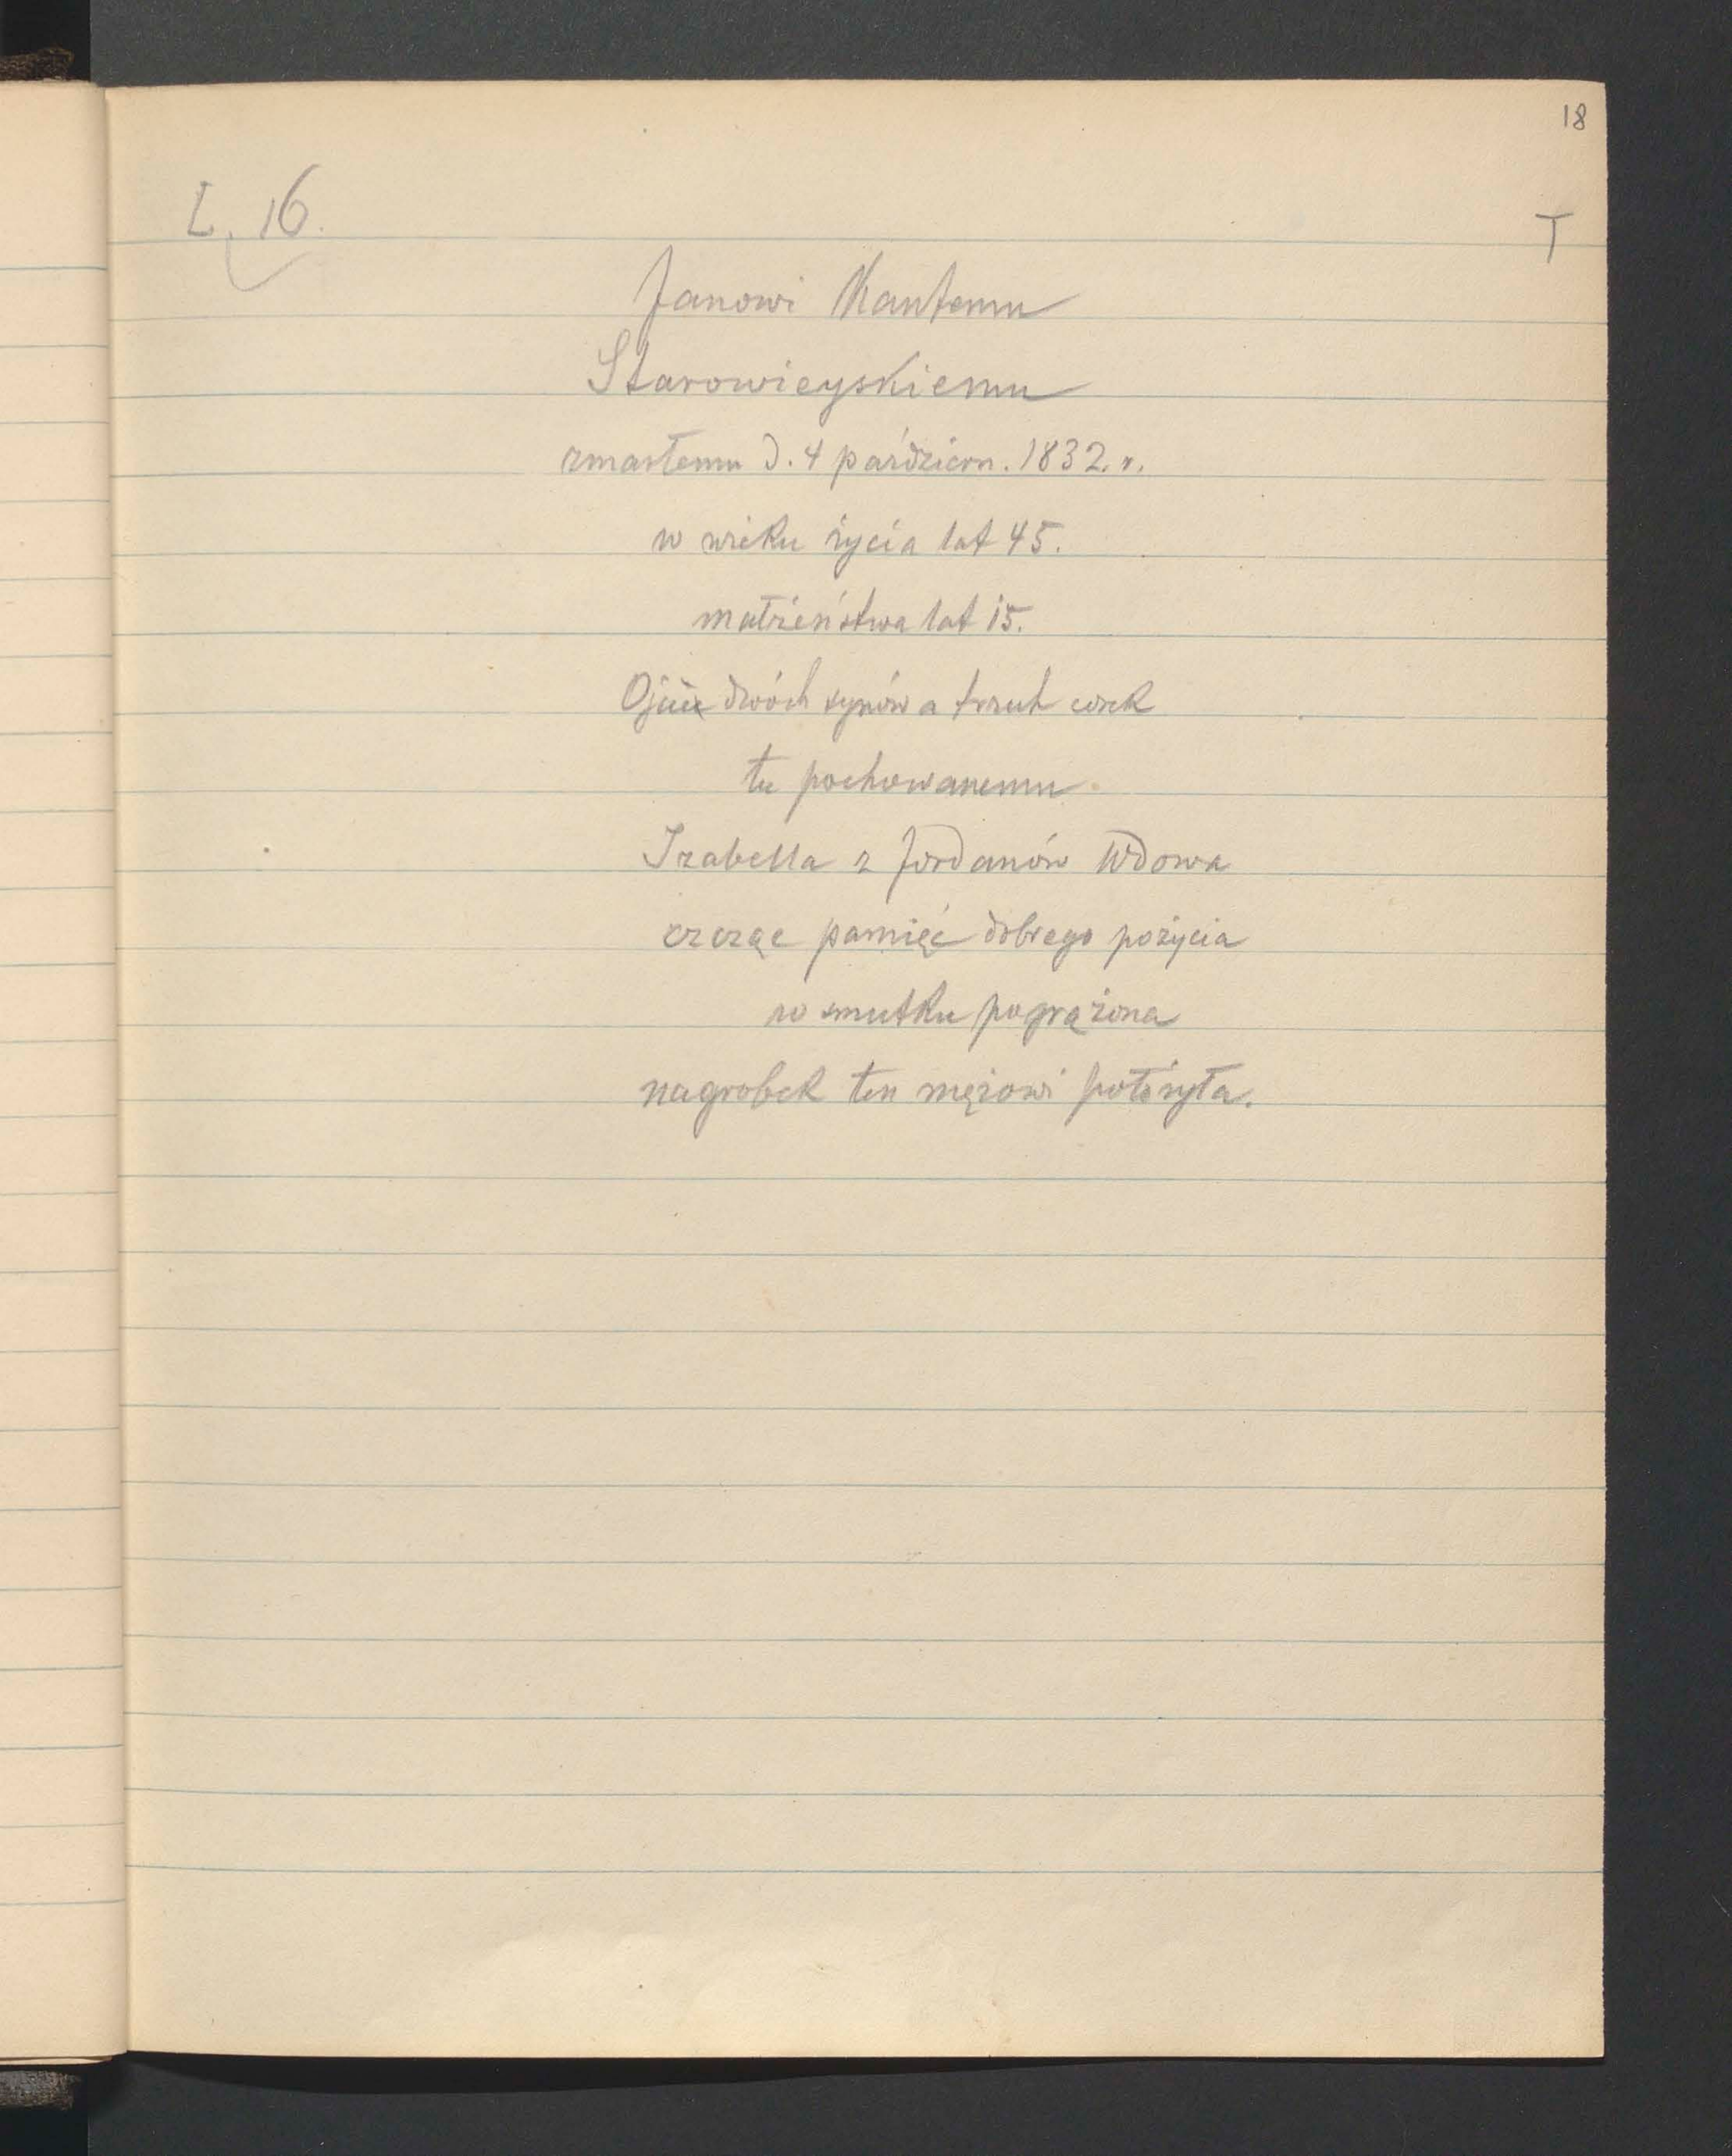 18
L. 16.
T
Janowi Kantemu
Starowieyskiemu
zmarłemu d. 4 październ. 1832. r.
w wieku życia lat 45.
małżeństwa lat 15.
dwóch synów a trzech córek
tu pochowanemu.
Izabella z Jordanów Wdowa
cząc pamięć dobrego pożycia
w smutku pogrążona
nagrobek ten mężowi położyła.